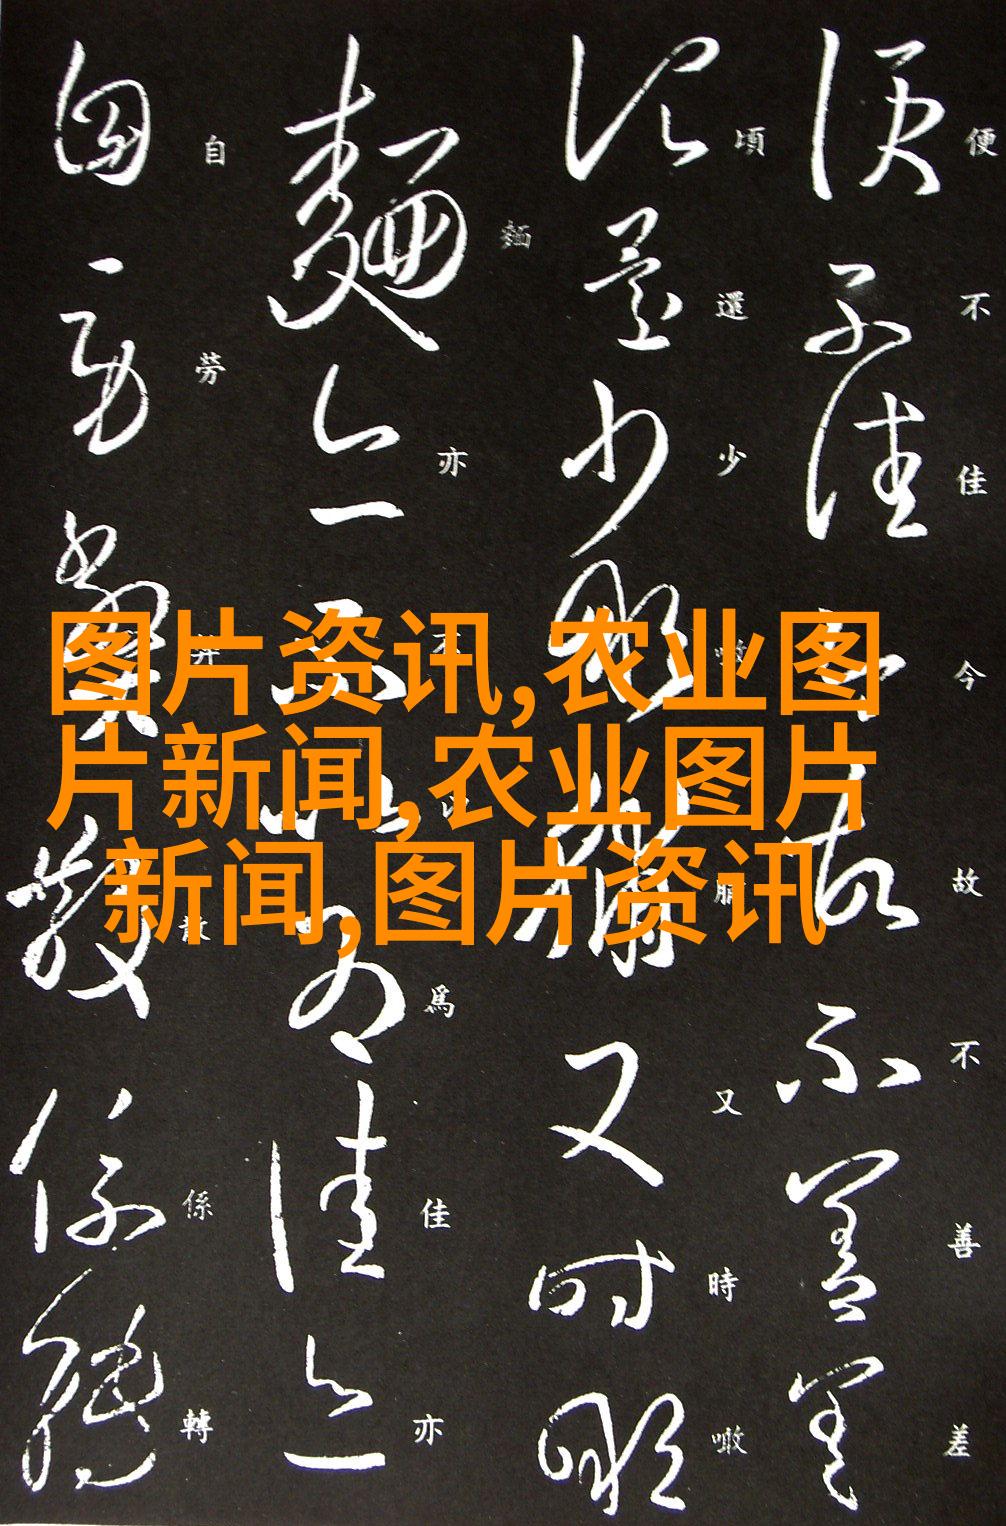 图片资讯,农业图
片新闻,农业图片
新闻,图片资讯
便不佳今故不善差
頃還少噉脯又時噉
麵亦不以為佳亦
自勞弊散係轉